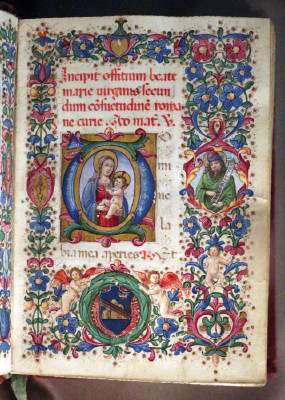 Incipit offitium beate
marie virginis secun
dum cōsuetudinē roma
ne curie.
D mi
ne
la
bia mea aperies